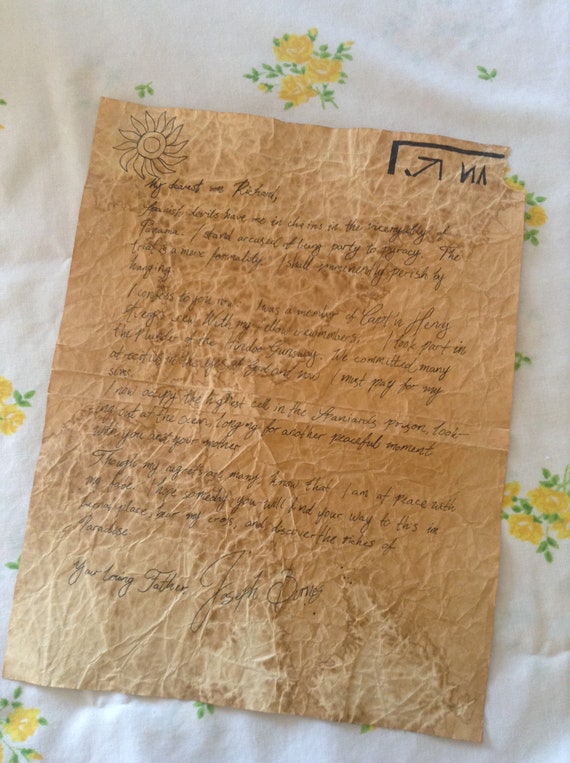 My dearest son Richard,
Spanish devils have me in chains in the viceroyalty of
Panama. I stand accused of being party to piracy. The
trial is a mere formality. I shall imminently perish by
hanging.
I confess to you now I was a member of Capt'n Henry
crew. With my fellow crewmembers, I took part in
the Plunder of the Gunsway. We committed many
atrocities in the eyes of God and now I must pay for my
sins.
I now occupy the highest cell in the Spaniards prison, look-
ing out at the ocean, longing for another peaceful moment
with you and your mother.
Though my regrets are many, know that I am at peace with
my fate. I hope someday you will find your way to this
place, bear my cross, and discover the riches of
Paradise.
Your loving Father, Joseph